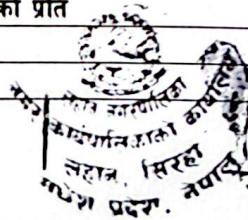 का प्रति
लहान नगरपालिका
नगर कार्यपालिकाको कार्यालय
लहान, सिरहा
मधेश प्रदेश, नेपाल